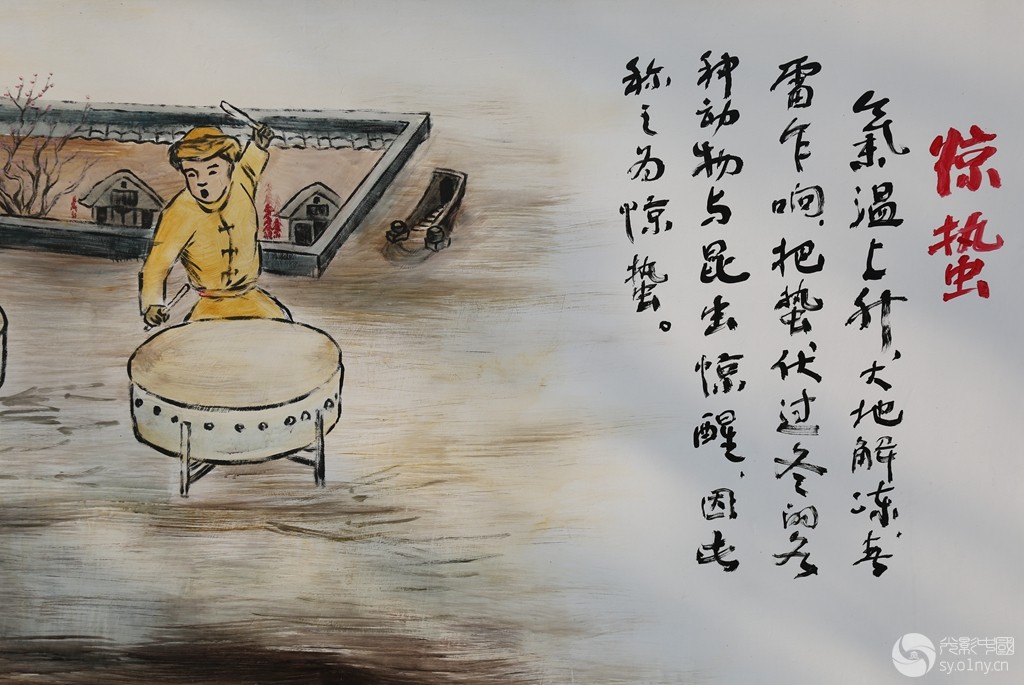 惊蛰
氣温上升、大地解冻、春
雷乍响、把蛰伏过冬的各
种动物与昆虫惊醒、因此
称之为惊蛰。
光影中國
sy.o1ny.cn